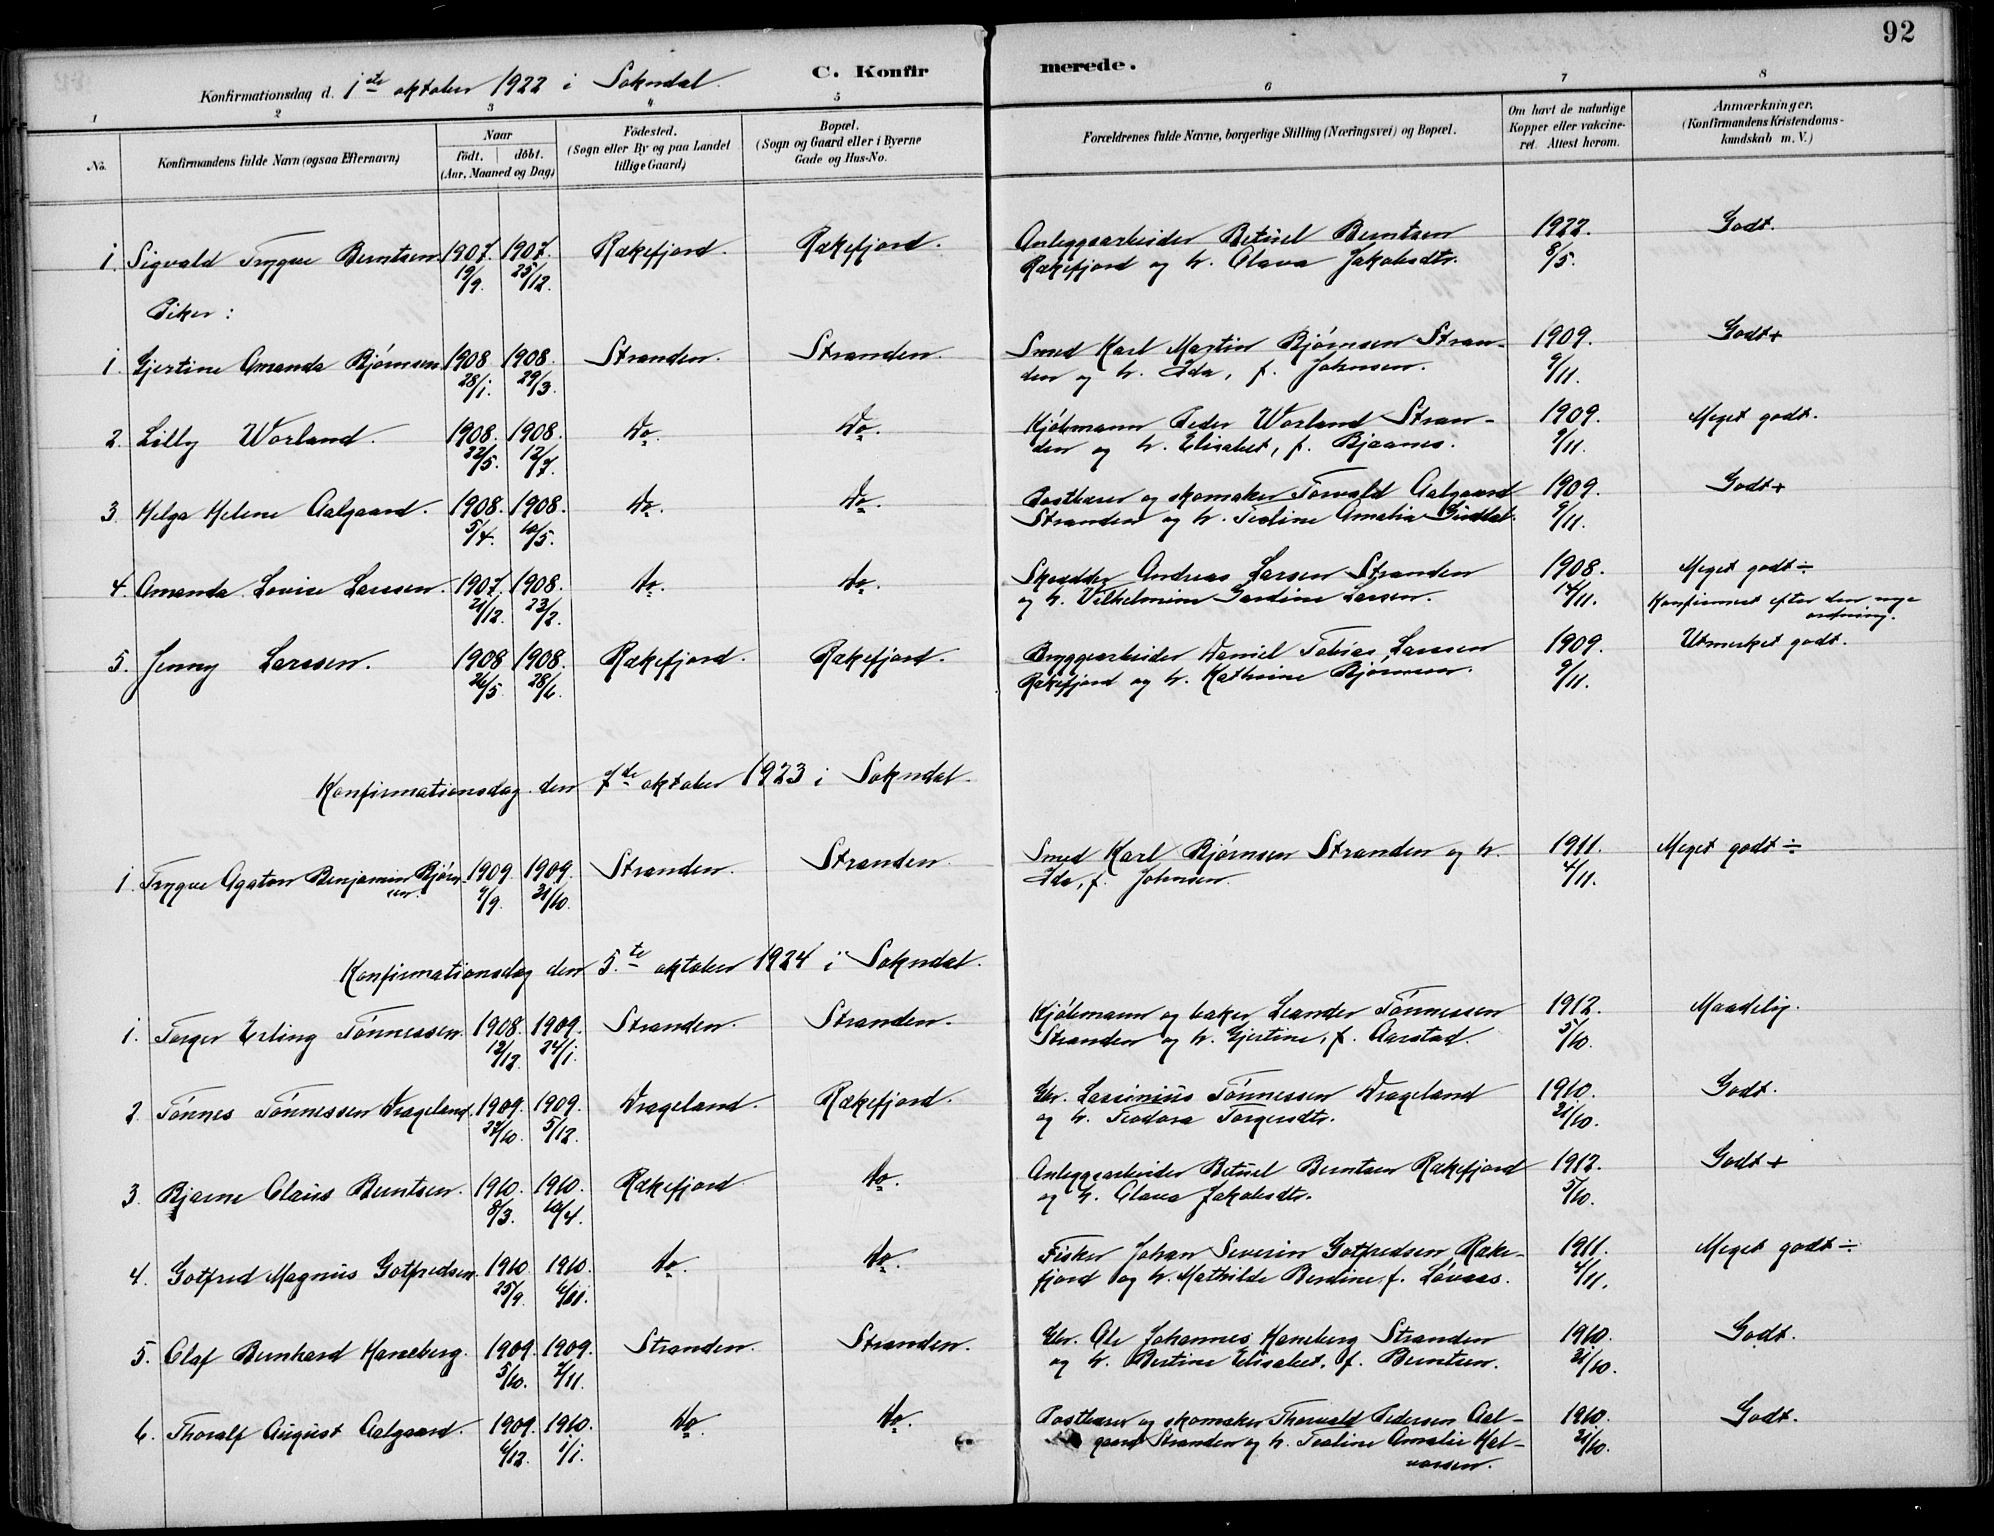 92
C. Konfirmerede.
Konfirmationsdag d. 1ste oktober 1922 i Sokndal.
1 2 3 4 5 6 7 8
No. Konfirmandens fulde Navn (ogsaa Efternavn) Naar födt. döbt. (Aar, Maaned og Dag) Födested. (Sogn eller By og paa Landet tillige Gaard) Bopæl. (Sogn og Gaard eller i Byerne Gade og Hus-No. Forældrenes fulde Navne, borgerlige Stilling (Næringsvei) og Bopæl. Om havt de naturlige Kopper eller vakcineret. Attest herom. Anmærkninger. (Konfirmandens Kristendomskundskab m. V.)
1. Sigvald Trygve Berntsen 1907. 1907. Rækefjord Rækefjord. Anleggsarbeider Betuel Berntsen 1922. Godt.
19/9. 25/12. Rækefjord og h. Olava Jakobsdtr. 8/5.
Piker:
1. Gjertine Amanda Bjørnsen 1908 1908. Stranden. Stranden. Smed Karl Martin Bjørnsen Stran- 1909. Godt+
28/1. 29/3. den og h. Ida, f. Johnsen. 9/11.
2. Lilly Worland. 1908. 1908. Do. Do. Kjøbmann Peder Worland Stran- 1909. Meget godt.
22/5. 12/7. den og h. Elisabet, f. Bjaanes. 9/11.
3. Helga Helene Aalgaard. 1908. 1908. Do. Do. Postbærer og skomaker Torvald Aalgaard 1909. Godt+
5/4. 10/5. Stranden og h. Tealine Amalia 9/11.
4. Amanda Lovise Larssen. 1907. 1908. Do. Do. Skrædder Andreas Larsen Stranden 1908. Meget godt÷
21/12. 23/2. og h. Vilhelmine Gardine Larsen. 14/11. Konfirmert efter den nye
ordning.
5. Jenny Larssen. 1908 1908. Rækefjord. Rækefjord. Bryggearbeider Daniel Tobias Larssen 1909. Utmerket godt.
26/5. 28/6. Rækefjord og h. Kathrine Bjørnsen. 9/11.
Konfirmationsdag den 7de oktober 1923 i Sokndal.
1. Trygve Agaton Benjamin Bjørn- 1909. 1909. Stranden. Stranden. Smed Karl Bjørnsen Stranden og h. 1911. Meget godt÷
sen. 9/9. 31/10. Ida, f. Johnsen. 4/11.
Konfirmationsdag den 5.te oktober 1924 i Sokndal.
1. Torger Erling Tønnessen. 1908. 1909. Stranden. Stranden. Kjøbmann og baker Leander Tønnessen 1912. Maadelig.
12/12. 24/1. Stranden og h. Gjertine, f. Aarstad. 5/10.
2. Tønnes Tønnessen Drageland. 1909. 1909. Drageland. Rækefjord. Gbr. Lassinius Tønnessen Drageland 1910. Godt.
5/12. og h. Teodora Torgersdtr. 21/10.
3. Bjarne Olaus Berntsen. 1910. 1910. Rækefjord. Do. Anleggsarbeider Betuel Berntsen Rækefjord 1912. Godt+
8/3. 10/4. og h. Olava Jakobsdtr. 5/10.
4. Gotfred Magnus Gotfredsen. 1910 1910. Do. Do. Fisker Johan Severin Gotfredsen Ræke- 1911. Meget godt÷
25/9. fjord og h. Mathilde Berdine, f. Løvaas. 4/11.
5. Olaf Bernhard Haneberg. 1909. 1909. Stranden. Stranden. Gbr. Ole Johannes Haneberg Stranden 1910. Godt.
5/10. 7/11. og h. Bertine Elisabet, f. Berntsen. 21/10.
6. Thoralf August Aalgaard. 1909. 1910. Do. Do. Postbærer og skomaker Thorvald Pedersen Aal- 1910. Godt.
6/12. 1/1. gaard Stranden og h. Tealine Amalie Hal- 21/10.
vorsen.